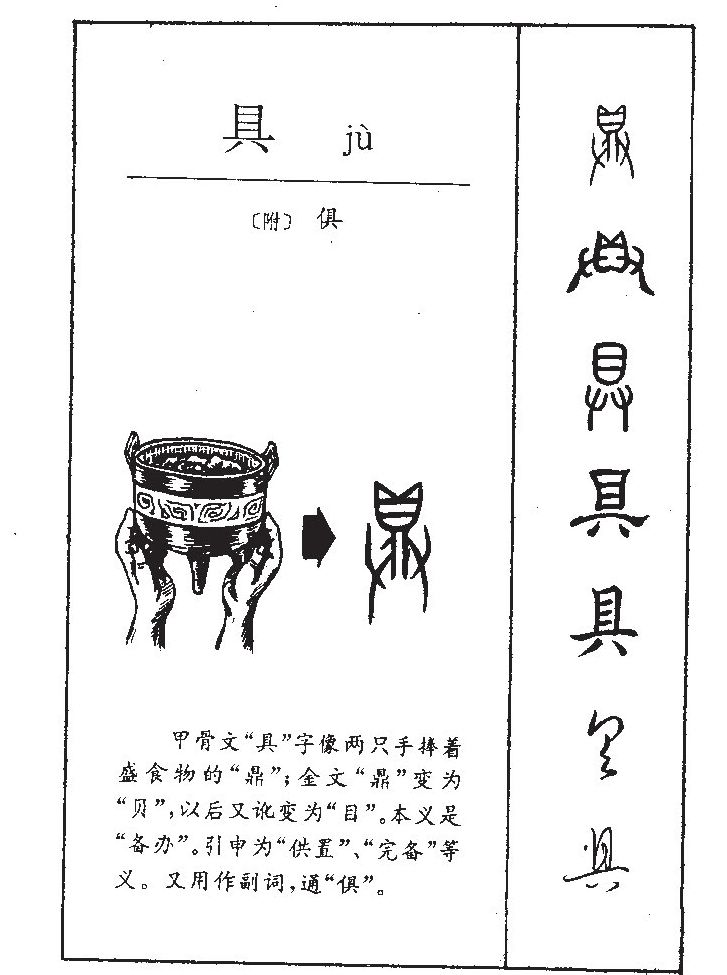 具 jù
〔附〕 俱
甲骨文“具”字像两只手捧着
盛食物的“鼎”；金文“鼎”变为
“贝”，以后又讹变为“目”。本义是
“备办”。引申为“供置”、“完备”等
义。又用作副词，通“俱”。
具
具